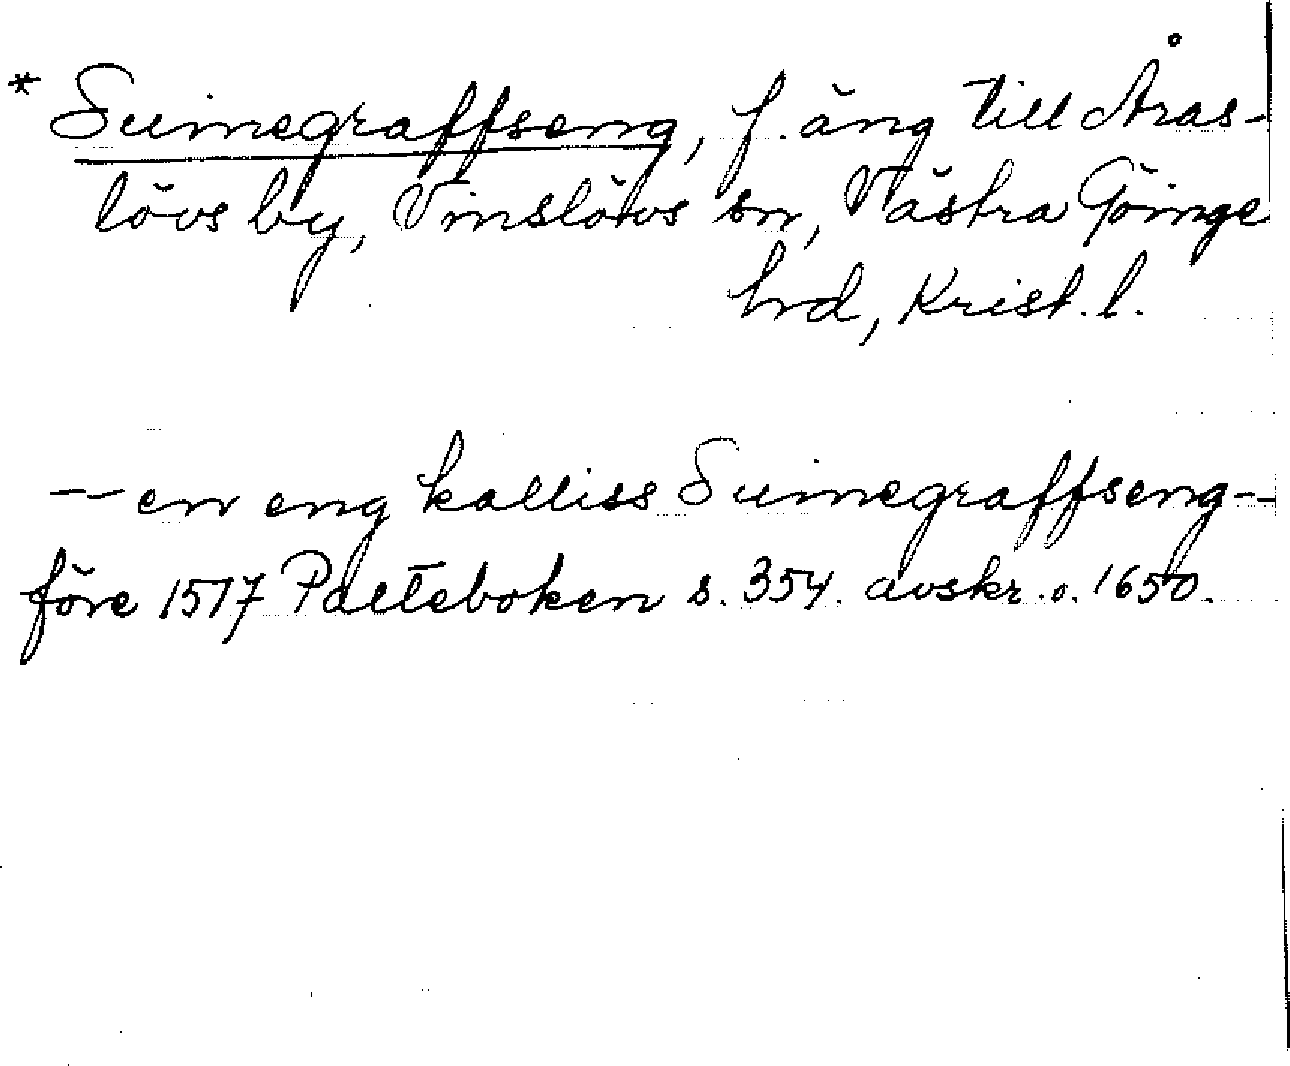 * Suinegraffseng, f. äng till Åras-
lövs by, Vinslövs sn, Västra Göinge
hrd, Krist. l.
— en eng kalliss Suinegraffseng —
före 1517 Palteboken s. 354. avskr. o. 1650.